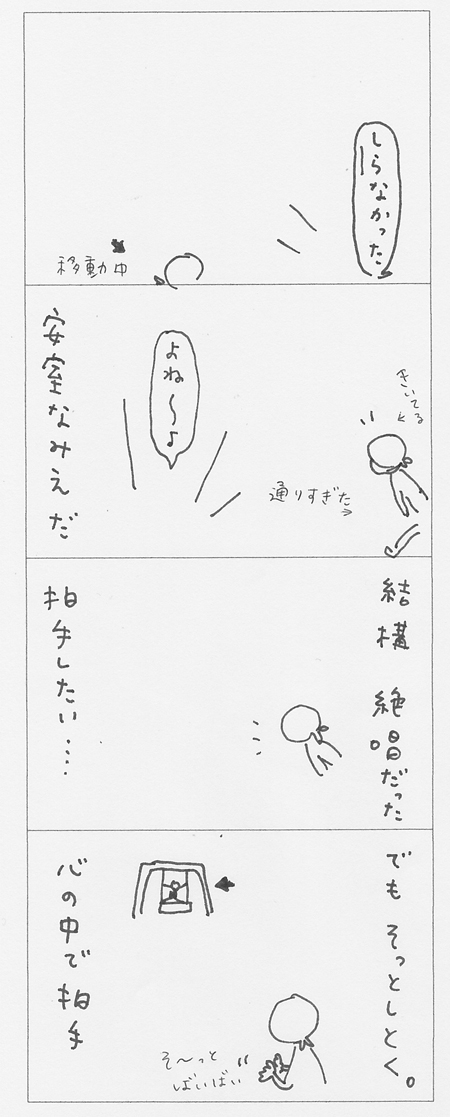 しらなかった
移動中
きいてる
通りすぎた
よね〜よ
安室なみえだ
結構 絶唱だった
拍手したい‥‥
でも そっとしとく。
そ〜っと
ばいばい
心の中で拍手